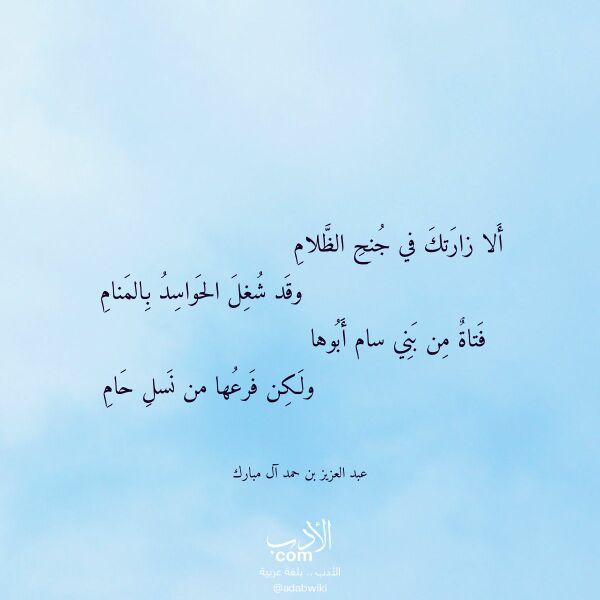 أَلا زارَتكَ في جُنحِ الظَّلامِ
وقَد شُغِلَ الحَواسِدُ بِالمَنامِ
فَتاةٌ مِن بَنِي سام أَبُوها
ولَكِن فَرعُها من نَسلِ حَامِ
عبد العزيز بن حمد آل مبارك
الأدب
.com
الأدب .. بلغة عربية
@adabwiki